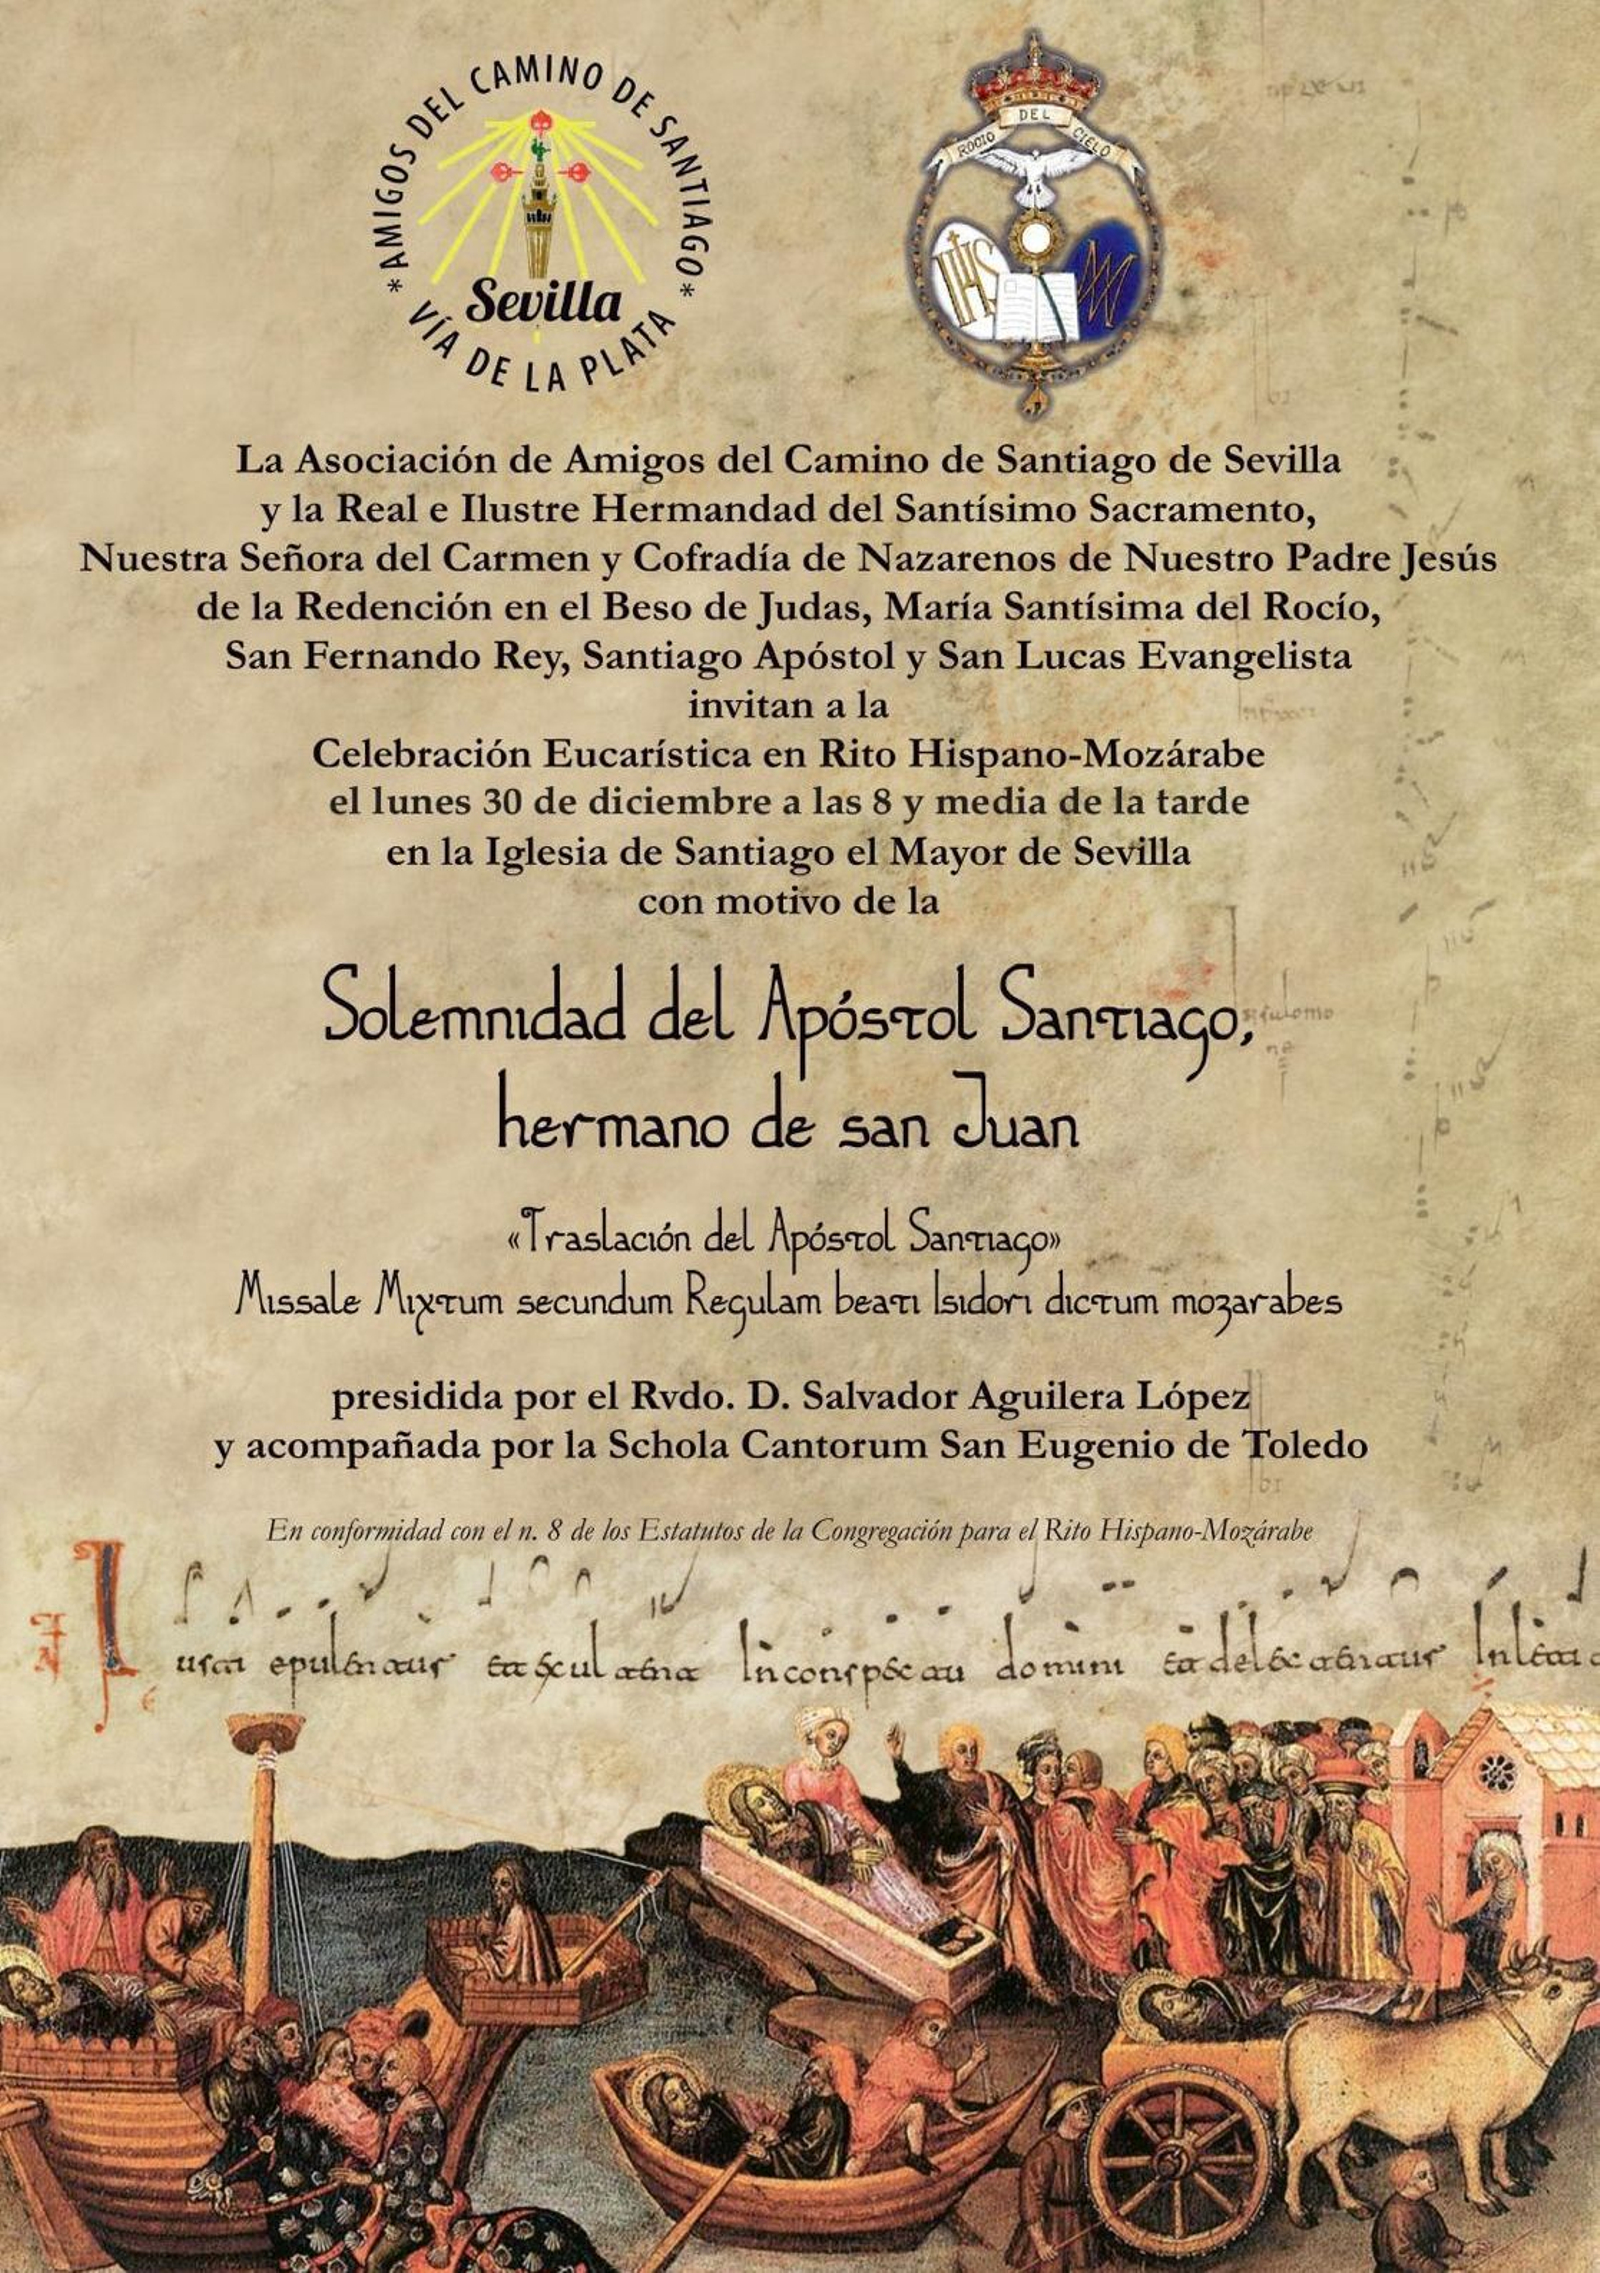 * AMIGOS DEL CAMINO DE SANTIAGO *
Sevilla
VÍA DE LA PLATA
ROCIO DEL CIELO
IHS
La Asociación de Amigos del Camino de Santiago de Sevilla
y la Real e Ilustre Hermandad del Santísimo Sacramento,
Nuestra Señora del Carmen y Cofradía de Nazarenos de Nuestro Padre Jesús
de la Redención en el Beso de Judas, María Santísima del Rocío,
San Fernando Rey, Santiago Apóstol y San Lucas Evangelista
invitan a la
Celebración Eucarística en Rito Hispano-Mozárabe
el lunes 30 de diciembre a las 8 y media de la tarde
en la Iglesia de Santiago el Mayor de Sevilla
con motivo de la
Solemnidad del Apóstol Santiago,
hermano de san Juan
«Traslación del Apóstol Santiago»
Missale Mixtum secundum Regulam beati Isidori dictum mozarabes
presidida por el Rvdo. D. Salvador Aguilera López
y acompañada por la Schola Cantorum San Eugenio de Toledo
En conformidad con el n. 8 de los Estatutos de la Congregación para el Rito Hispano-Mozárabe